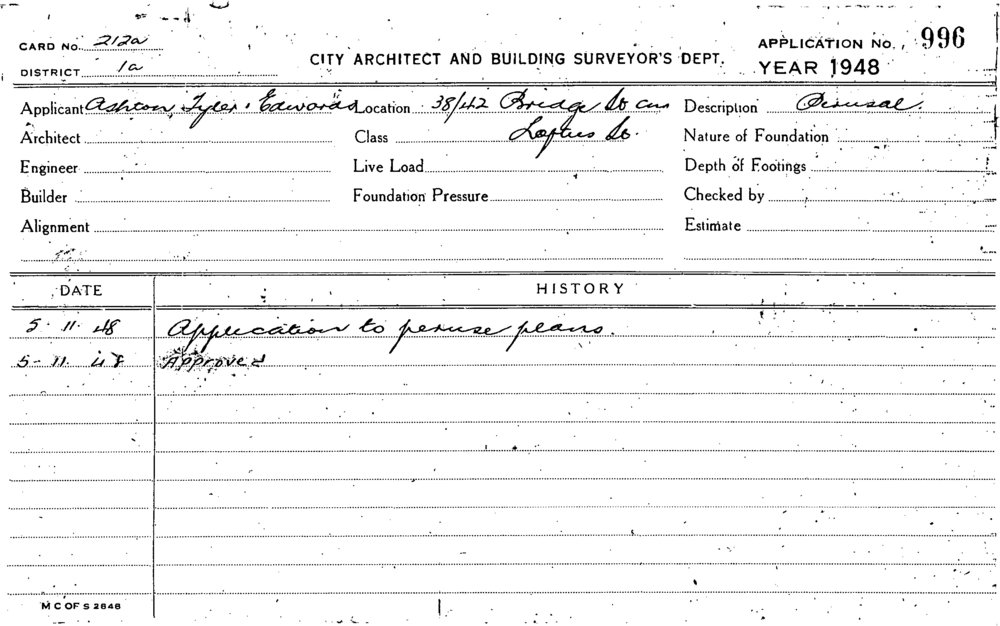 CARD NO. 212a
DISTRICT 1a
CITY ARCHITECT AND BUILDING SURVEYOR'S DEPT.
APPLICATION NO. 996
YEAR 1948
Applicant Ashton, Tyder, Edwards Location 38/42 Bridge St cnr Description Perusal.
Architect Class Loftus St. Nature of Foundation
Engineer Live Load Depth of Footings
Builder Foundation Pressure Checked by
Alignment Estimate
DATE HISTORY
5. 11. 48 Application to peruse plans.
5- 11. 48 Approved
M C OF S 2848